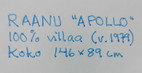 RAANU "APOLLO"
100% villaa (v. 1979)
Koko 146 x 89 cm